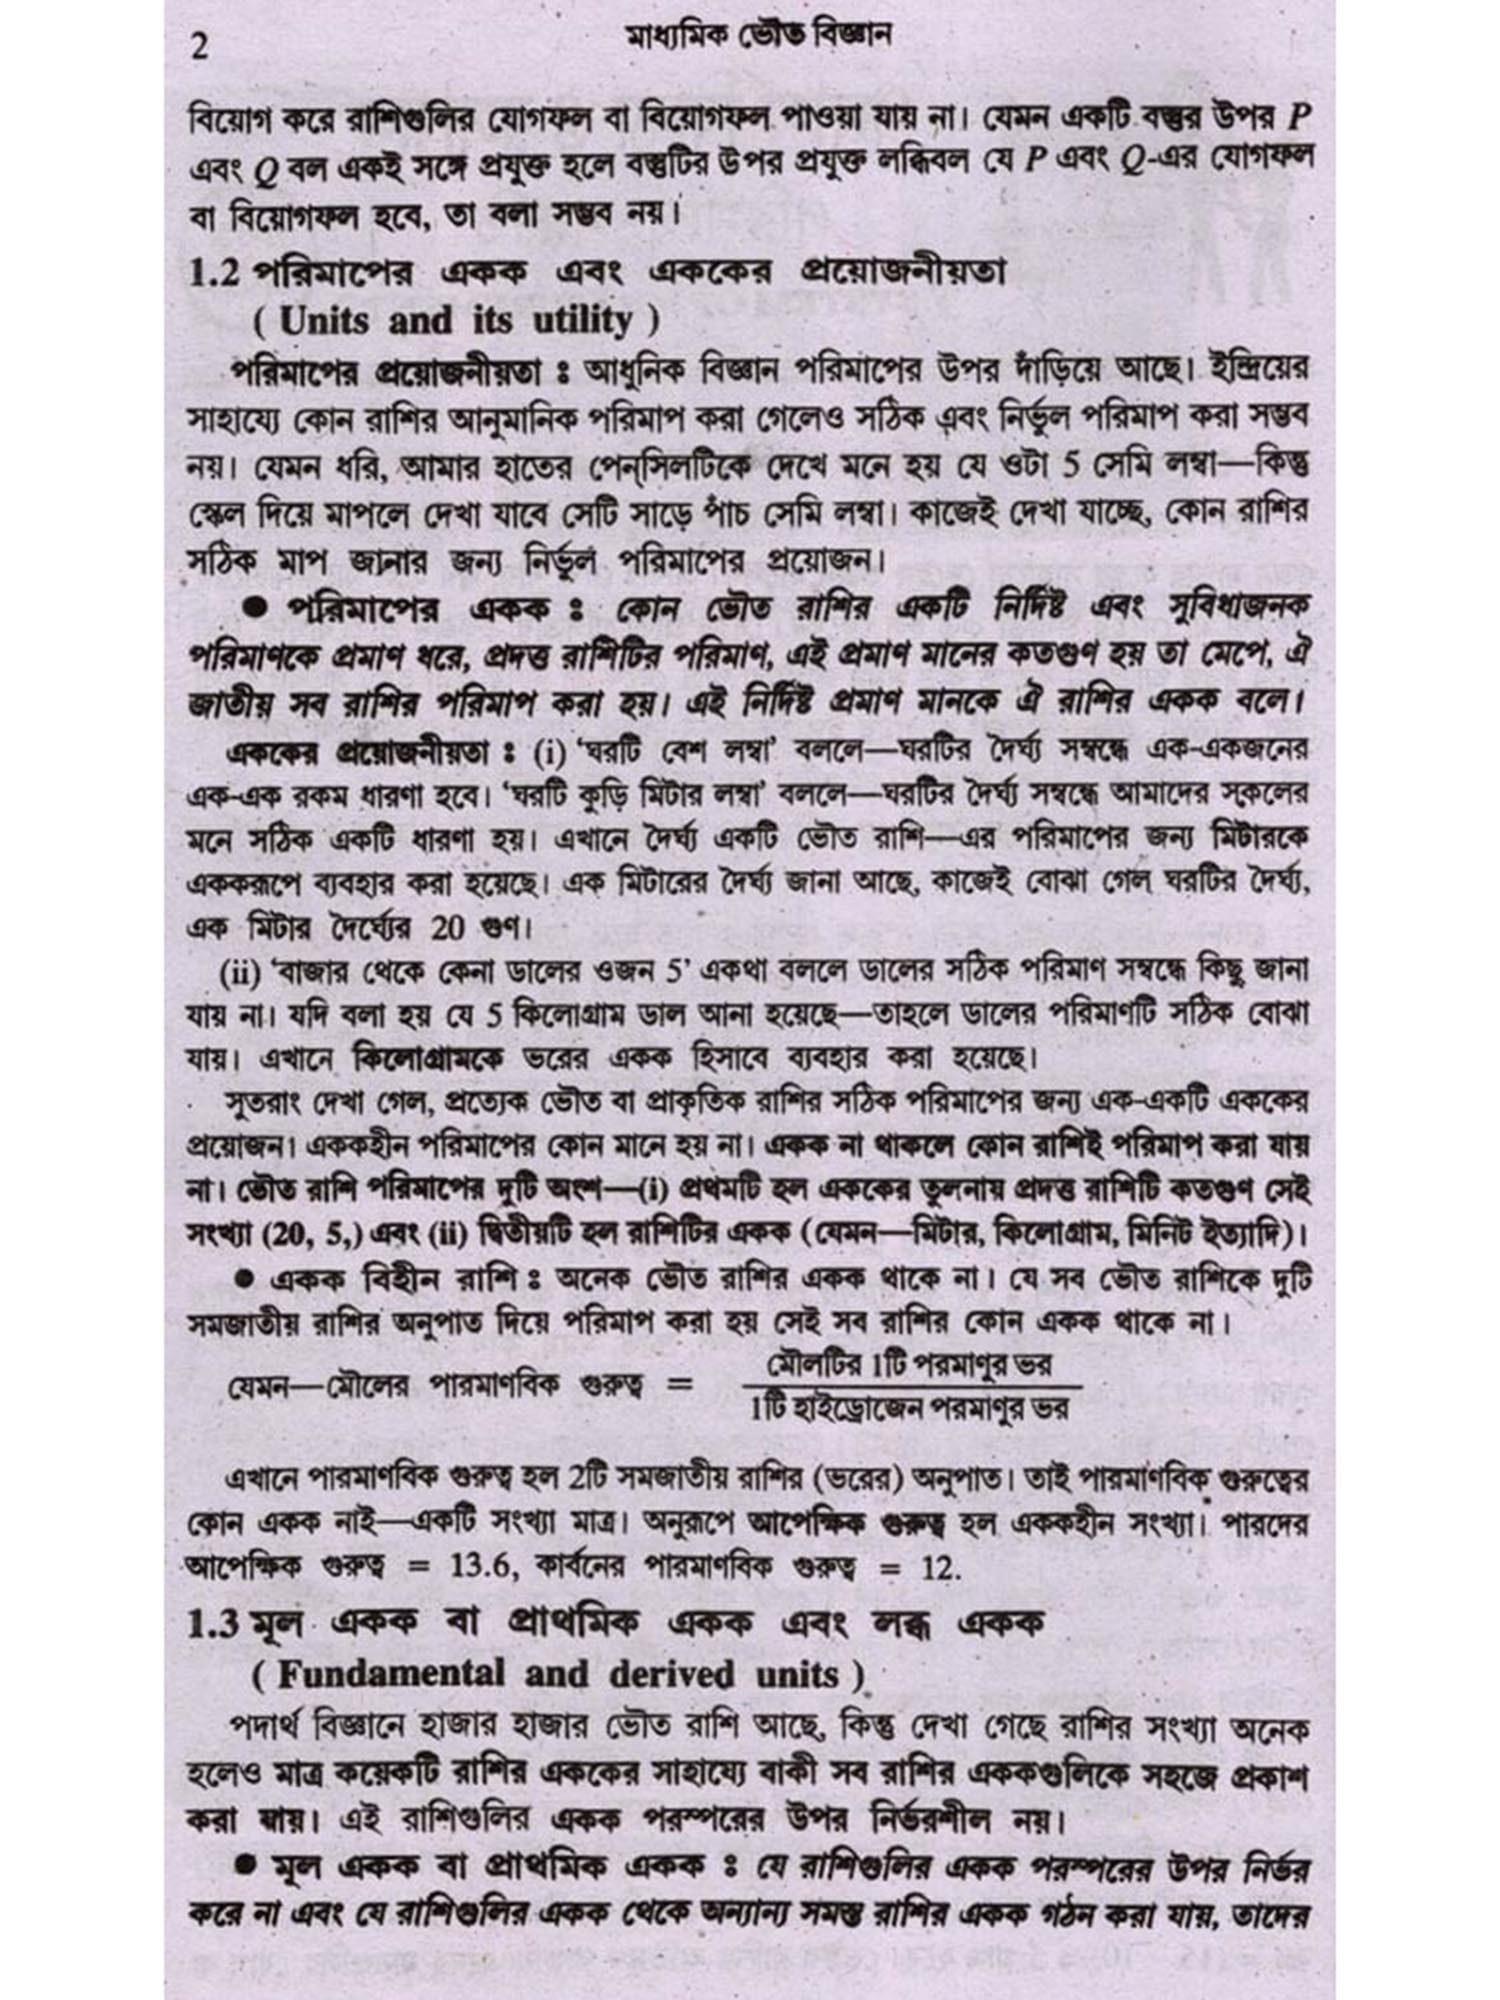 2
মাধ্যমিক ভৌত বিজ্ঞান
বিয়োগ করে রাশিগুলির যোগফল বা বিয়োগফল পাওয়া যায় না। যেমন একটি বস্তুর উপর P
এবং Q বল একই সঙ্গে প্রযুক্ত হলে বস্তুটির উপর প্রযুক্ত লব্ধিবল যে P এবং Q-এর যোগফল
বা বিয়োগফল হবে, তা বলা সম্ভব নয়।
1.2 পরিমাপের একক এবং এককের প্রয়োজনীয়তা
( Units and its utility )
পরিমাপের প্রয়োজনীয়তা : আধুনিক বিজ্ঞান পরিমাপের উপর দাঁড়িয়ে আছে। ইন্দ্রিয়ের
সাহায্যে কোন রাশির আনুমানিক পরিমাপ করা গেলেও সঠিক এবং নির্ভুল পরিমাপ করা সম্ভব
নয়। যেমন ধরি, আমার হাতের পেন্‌সিলটিকে দেখে মনে হয় যে ওটা 5 সেমি লম্বা—কিন্তু
স্কেল দিয়ে মাপলে দেখা যাবে সেটি সাড়ে পাঁচ সেমি লম্বা। কাজেই দেখা যাচ্ছে, কোন রাশির
সঠিক মাপ জানার জন্য নির্ভুল পরিমাপের প্রয়োজন।
● পরিমাপের একক : কোন ভৌত রাশির একটি নির্দিষ্ট এবং সুবিধাজনক
পরিমাণকে প্রমাণ ধরে, প্রদত্ত রাশিটির পরিমাণ, এই প্রমাণ মানের কতগুণ হয় তা মেপে, ঐ
জাতীয় সব রাশির পরিমাপ করা হয়। এই নির্দিষ্ট প্রমাণ মানকে ঐ রাশির একক বলে।
এককের প্রয়োজনীয়তা : (i) ‘ঘরটি বেশ লম্বা’ বললে—ঘরটির দৈর্ঘ্য সম্বন্ধে এক-একজনের
এক-এক রকম ধারণা হবে। ‘ঘরটি কুড়ি মিটার লম্বা’ বললে—ঘরটির দৈর্ঘ্য সম্বন্ধে আমাদের সকলের
মনে সঠিক একটি ধারণা হয়। এখানে দৈর্ঘ্য একটি ভৌত রাশি—এর পরিমাপের জন্য মিটারকে
এককরূপে ব্যবহার করা হয়েছে। এক মিটারের দৈর্ঘ্য জানা আছে, কাজেই বোঝা গেল ঘরটির দৈর্ঘ্য,
এক মিটার দৈর্ঘ্যের 20 গুণ।
(ii) ‘বাজার থেকে কেনা ডালের ওজন 5’ একথা বললে ডালের সঠিক পরিমাণ সম্বন্ধে কিছু জানা
যায় না। যদি বলা হয় যে 5 কিলোগ্রাম ডাল আনা হয়েছে—তাহলে ডালের পরিমাণটি সঠিক বোঝা
যায়। এখানে কিলোগ্রামকে ভরের একক হিসাবে ব্যবহার করা হয়েছে।
সুতরাং দেখা গেল, প্রত্যেক ভৌত বা প্রাকৃতিক রাশির সঠিক পরিমাপের জন্য এক-একটি এককের
প্রয়োজন। এককহীন পরিমাপের কোন মানে হয় না। একক না থাকলে কোন রাশিই পরিমাপ করা যায়
না। ভৌত রাশি পরিমাপের দুটি অংশ—(i) প্রথমটি হল এককের তুলনায় প্রদত্ত রাশিটি কতগুণ সেই
সংখ্যা (20, 5,) এবং (ii) দ্বিতীয়টি হল রাশিটির একক (যেমন—মিটার, কিলোগ্রাম, মিনিট ইত্যাদি)।
● একক বিহীন রাশি : অনেক ভৌত রাশির একক থাকে না। যে সব ভৌত রাশিকে দুটি
সমজাতীয় রাশির অনুপাত দিয়ে পরিমাপ করা হয় সেই সব রাশির কোন একক থাকে না।
মৌলটির 1টি পরমাণুর ভর
যেমন—মৌলের পারমাণবিক গুরুত্ব =
1টি হাইড্রোজেন পরমাণুর ভর
এখানে পারমাণবিক গুরুত্ব হল 2টি সমজাতীয় রাশির (ভরের) অনুপাত। তাই পারমাণবিক গুরুত্বের
কোন একক নাই—একটি সংখ্যা মাত্র। অনুরূপে আপেক্ষিক গুরুত্ব হল এককহীন সংখ্যা। পারদের
আপেক্ষিক গুরুত্ব = 13.6, কার্বনের পারমাণবিক গুরুত্ব = 12.
1.3 মূল একক বা প্রাথমিক একক এবং লব্ধ একক
( Fundamental and derived units )
পদার্থ বিজ্ঞানে হাজার হাজার ভৌত রাশি আছে, কিন্তু দেখা গেছে রাশির সংখ্যা অনেক
হলেও মাত্র কয়েকটি রাশির এককের সাহায্যে বাকী সব রাশির এককগুলিকে সহজে প্রকাশ
করা যায়। এই রাশিগুলির একক পরস্পরের উপর নির্ভরশীল নয়।
● মূল একক বা প্রাথমিক একক : যে রাশিগুলির একক পরস্পরের উপর নির্ভর
করে না এবং যে রাশিগুলির একক থেকে অন্যান্য সমস্ত রাশির একক গঠন করা যায়, তাদের